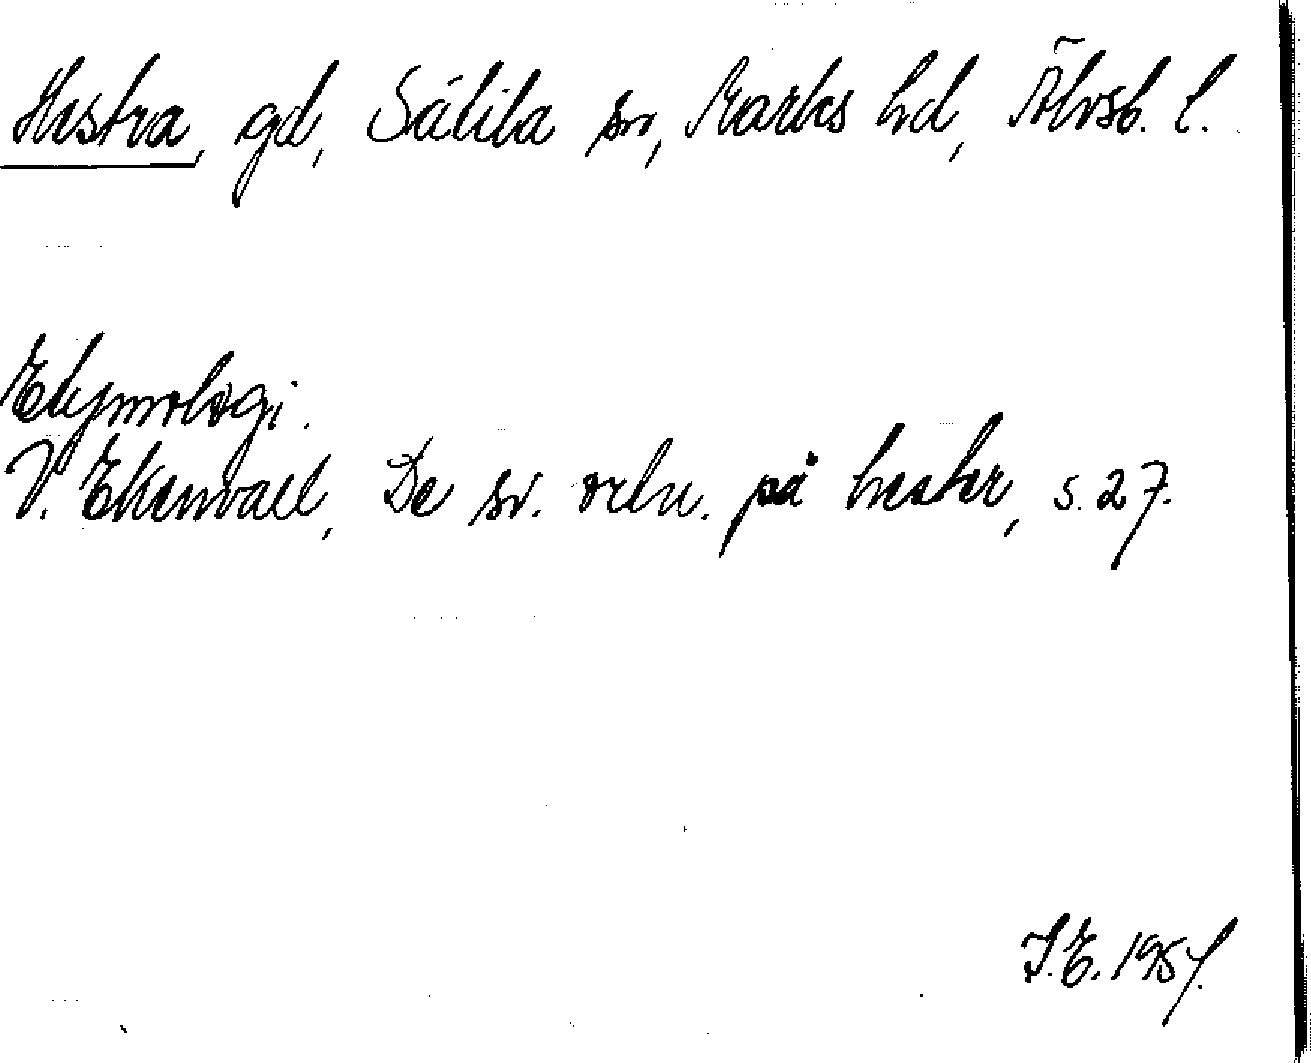 Hestra, gd, Sätila sn, Marks hd, Älvsb. l.
Etymologi.
V. Ekenvall, De sv. ortn. på hester, s. 27.
I.E. 1957.